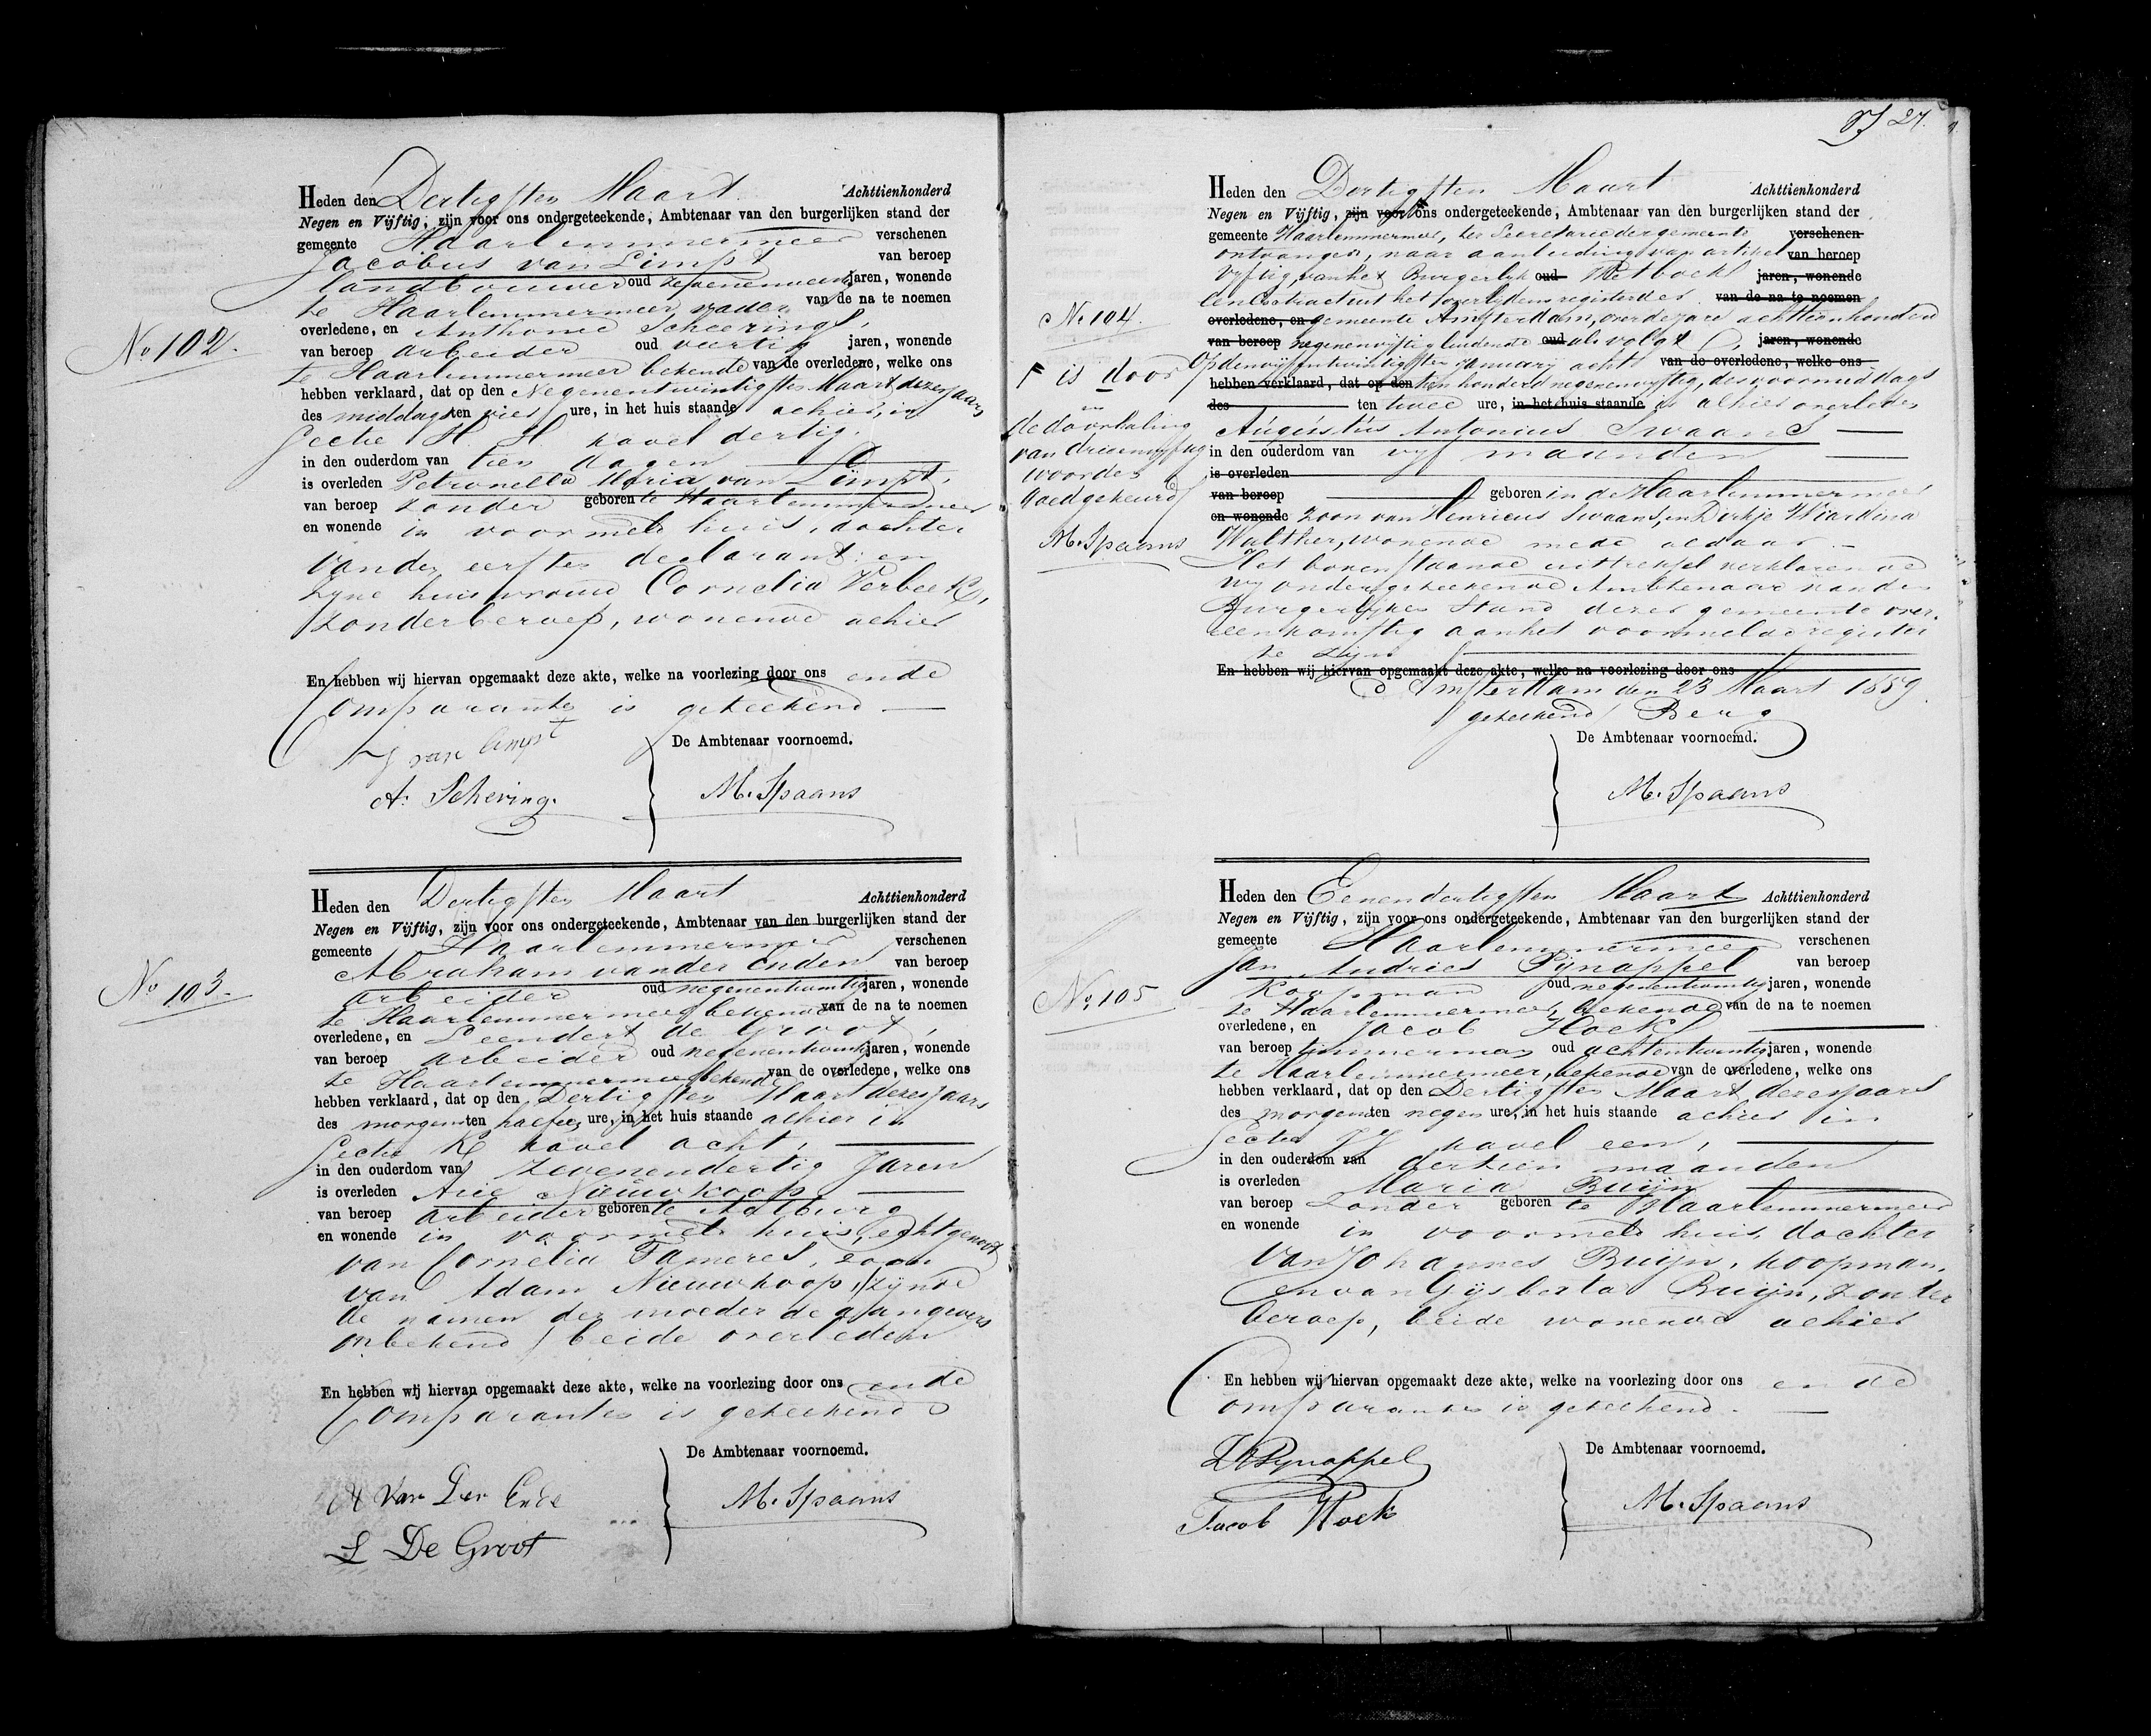 No 102.
Heden den Dertigsten Maart Achttienhonderd
Negen en Vijftig, zijn voor ons ondergeteekende, Ambtenaar van den burgerlijken stand der
gemeente Haarlemmermeer verschenen
Jacobus van Limpt van beroep
landbouwer oud jaren, wonende
te Haarlemmermeer vader van de na te noemen
overledene, en Anthonie Scheering,
van beroep arbeider oud veertig jaren, wonende
te Haarlemmermeer bekende van de overledene, welke ons
hebben verklaard, dat op den Negenentwintigsten Maart dezes jaars
des middags ten vier ure, in het huis staande alhier, in
Sectie H H kavel dertig.
in den ouderdom van tien dagen
is overleden Petronella Maria van Limpt,
van beroep zonder geboren te Haarlemmermeer
en wonende in voormeld huis, dochter
van den eersten declarant en
zyne huisvrouw Cornelia Verbeek,
zonder beroep, wonende alhier
En hebben wij hiervan opgemaakt deze akte, welke na voorlezing door ons en de
Comparanten is geteekend
J van limpt
De Ambtenaar voornoemd.
A. Schering.
M. Spaans
No 103.
Heden den Dertigsten Maart Achttienhonderd
Negen en Vijftig, zijn voor ons ondergeteekende, Ambtenaar van den burgerlijken stand der
gemeente Haarlemmermeer verschenen
Abraham van der Enden van beroep
arbeider oud negenentwintig jaren, wonende
te Haarlemmermeer bekende van de na te noemen
overledene, en Leendert de Groot,
van beroep arbeider oud negenentwintig jaren, wonende
te Haarlemmermeer bekende van de overledene, welke ons
hebben verklaard, dat op den Dertigsten Maart dezes jaars
des morgens ten half een ure, in het huis staande alhier in
Sectie K kavel acht,
in den ouderdom van zevenendertig Jaren
is overleden Arie Nieuwkoop
van beroep arbeider geboren te Aalburg
en wonende in voormeld huis, echtgenoot
van Cornelia Tameres, zoon
van Adam Nieuwkoop, (zynde
de namen der moeder de aangevers
onbekend) beide overleden
En hebben wij hiervan opgemaakt deze akte, welke na voorlezing door ons en de
Comparanten is geteekend
De Ambtenaar voornoemd.
A Van Der Ende
M. Spaans
L De Groot
27.
No 104.
Heden den Dertigsten Maart Achttienhonderd
Negen en Vijftig, zijn voor ons ondergeteekende, Ambtenaar van den burgerlijken stand der
gemeente Haarlemmermeer, ter Secretarie der gemeente verschenen
ontvangen, naar aanleiding van artikel van beroep
vyftig, van het Burgerlyk oud Wetboek jaren, wonende
een Extract uit het overlydens register der van de na te noemen
overledene, en gemeente Amsterdam, over de jare achttienhonderd
van beroep negenenvyftig luidende oud als volgt jaren, wonende
Op den vyfentwintigsten January acht van de overledene, welke ons
hebben verklaard, dat op den tienhonderd negenenvyftig, des voormiddags
des ten twee ure, in het huis staande is alhier overleden
Augustus Antonius Swaans
in den ouderdom van vyf maanden
is overleden
van beroep geboren in de Haarlemmermeer
en wonende zoon van Henricus Swaans, en Dirkje Wiardina
Walther, wonende mede aldaar
Het bovenstaande uittreksel verklaren
wy ondergeteekende Ambtenaar van den
Burgerlyken Stand dezer gemeente over-
eenkomstig aan het voormelde register
te zijn
En hebben wij hiervan opgemaakt deze akte, welke na voorlezing door ons
Amsterdam den 23 Maart 1859
geteekend Berg
is door
de doorhaling
van drieenvyftig
woorden
goedgekeurd
M. Spaans
De Ambtenaar voornoemd.
M. Spaans
No 105
Heden den Eenendertigsten Maart Achttienhonderd
Negen en Vijftig, zijn voor ons ondergeteekende, Ambtenaar van den burgerlijken stand der
gemeente Haarlemmermeer verschenen
Jan Andries Pijnappel van beroep
Koopman oud negenentwintig jaren, wonende
te Haarlemmermeer, bekende van de na te noemen
overledene, en Jacob Hoek
van beroep timmerman oud achtentwintig jaren, wonende
te Haarlemmermeer, bekende van de overledene, welke ons
hebben verklaard, dat op den Dertigsten Maart dezes jaars
des morgens ten negen ure, in het huis staande alhier in
Sectie kavel een,
in den ouderdom van dertien maanden
is overleden Maria Buijn
van beroep Zonder geboren te Haarlemmermeer
en wonende in voormeld huis, dochter
van Johannes Buijn, koopman,
en van Gijsberta Buijn, zonder
beroep, beide wonende alhier
En hebben wij hiervan opgemaakt deze akte, welke na voorlezing door ons en de
Comparanten is geteekend.
De Ambtenaar voornoemd.
Pynappel
Jacob Hoek
M. Spaans